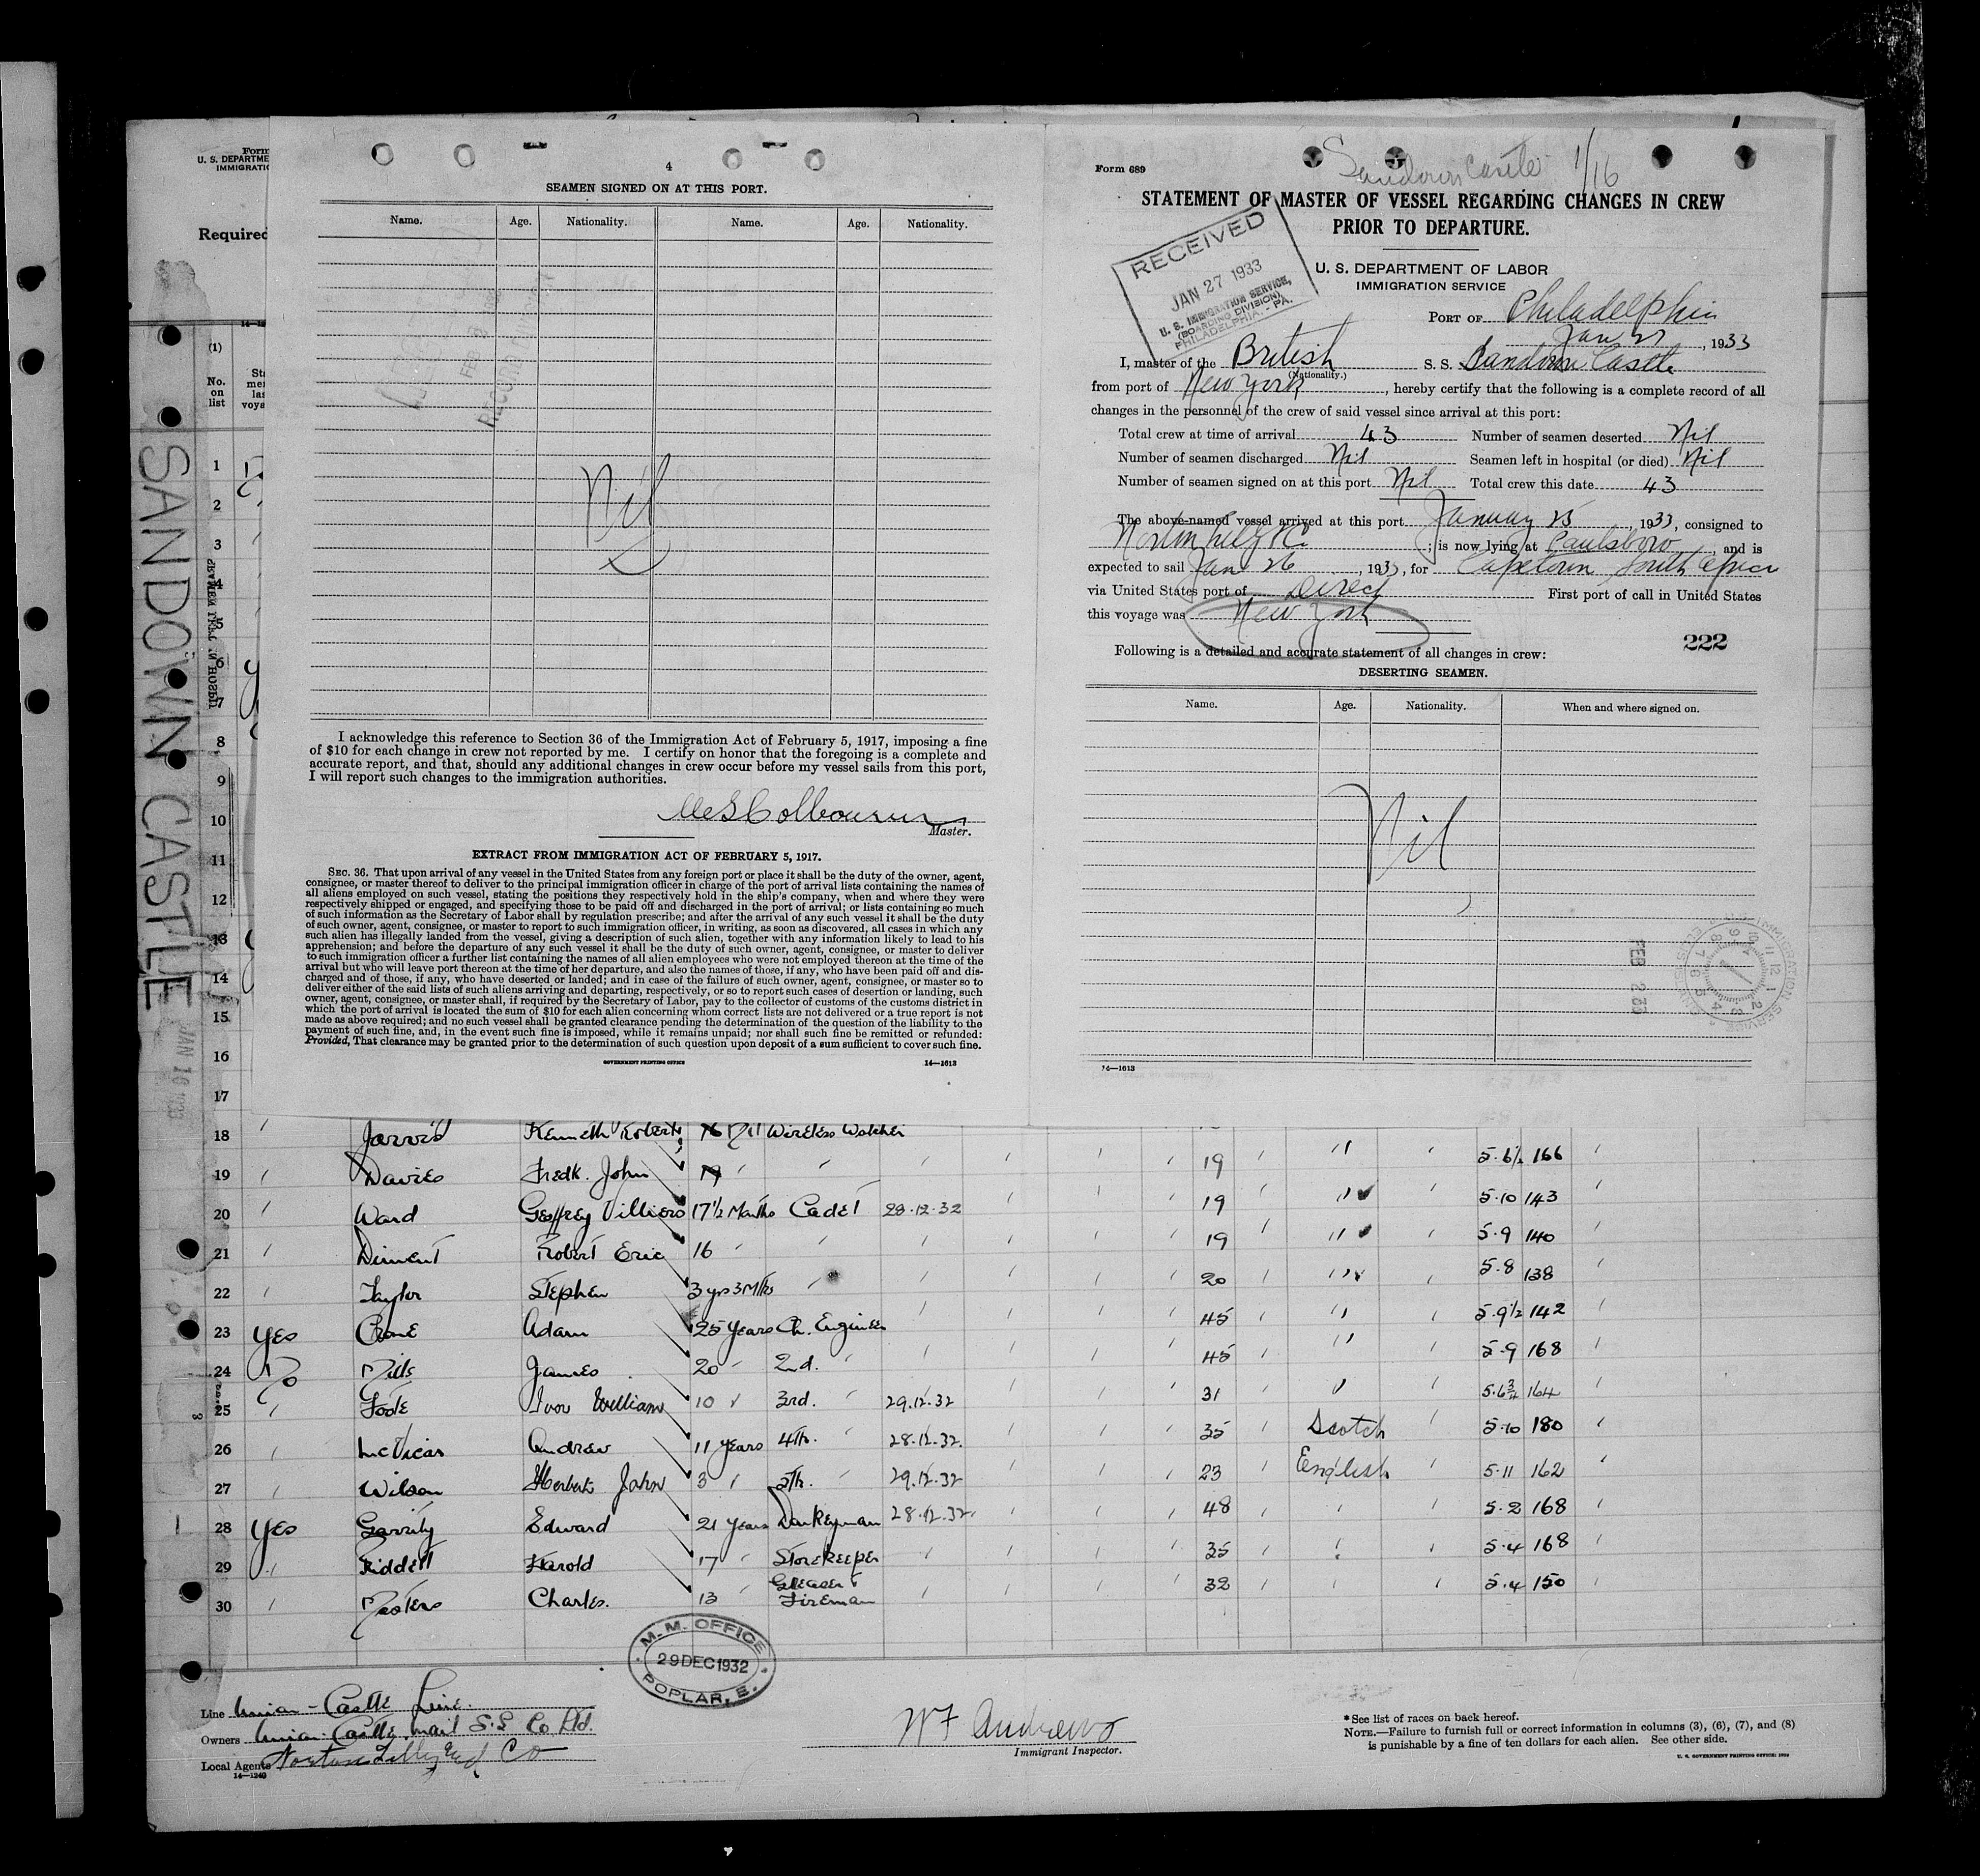 Form
U. S. DEPARTME
IMMIGRATIO
Required
SANDOWN CASTLE
JAN 16 1933
(1)
No. on list
1
2
3
4
5
6
7
8
9
10
11
12
13
14
15
16
17
4
SEAMEN SIGNED ON AT THIS PORT.
Name. Age. Nationality. Name. Age. Nationality.
Nil
I acknowledge this reference to Section 36 of the Immigration Act of February 5, 1917, imposing a fine
of $10 for each change in crew not reported by me. I certify on honor that the foregoing is a complete and
accurate report, and that, should any additional changes in crew occur before my vessel sails from this port,
I will report such changes to the immigration authorities.
Master.
EXTRACT FROM IMMIGRATION ACT OF FEBRUARY 5, 1917.
SEC. 36. That upon arrival of any vessel in the United States from any foreign port or place it shall be the duty of the owner, agent,
consignee, or master thereof to deliver to the principal immigration officer in charge of the port of arrival lists containing the names of
all aliens employed on such vessel, stating the positions they respectively hold in the ship's company, when and where they were
respectively shipped or engaged, and specifying those to be paid off and discharged in the port of arrival; or lists containing so much
of such information as the Secretary of Labor shall by regulation prescribe; and after the arrival of any such vessel it shall be the duty
of such owner, agent, consignee, or master to report to such immigration officer, in writing, as soon as discovered, all cases in which any
such alien has illegally landed from the vessel, giving a description of such alien, together with any information likely to lead to his
apprehension; and before the departure of any such vessel it shall be the duty of such owner, agent, consignee, or master to deliver
to such immigration officer a further list containing the names of all alien employees who were not employed thereon at the time of the
arrival but who will leave port thereon at the time of her departure, and also the names of those, if any, who have been paid off and dis-
charged and of those, if any, who have deserted or landed; and in case of the failure of such owner, agent, consignee, or master so to
deliver either of the said lists of such aliens arriving and departing, respectively, or so to report such cases of desertion or landing, such
owner, agent, consignee, or master shall, if required by the Secretary of Labor, pay to the collector of customs of the customs district in
which the port of arrival is located the sum of $10 for each alien concerning whom correct lists are not delivered or a true report is not
made as above required; and no such vessel shall be granted clearance pending the determination of the question of the liability to the
payment of such fine, and, in the event such fine is imposed, while it remains unpaid; nor shall such fine be remitted or refunded:
Provided, That clearance may be granted prior to the determination of such question upon deposit of a sum sufficient to cover such fine.
GOVERNMENT PRINTING OFFICE 14—1613
Sandown Castle 1/16
Form 689
STATEMENT OF MASTER OF VESSEL REGARDING CHANGES IN CREW
PRIOR TO DEPARTURE.
RECEIVED
JAN 27 1933
U. S. IMMIGRATION SERVICE,
(BOARDING DIVISION)
PHILADELPHIA, - PA.
U. S. DEPARTMENT OF LABOR
IMMIGRATION SERVICE
PORT OF Philadelphia
Jan 27, 1933
I, master of the British S. S. Sandown Castle
(Nationality.)
from port of New York, hereby certify that the following is a complete record of all
changes in the personnel of the crew of said vessel since arrival at this port:
Total crew at time of arrival 43 Number of seamen deserted Nil
Number of seamen discharged Nil Seamen left in hospital (or died) Nil
Number of seamen signed on at this port Nil Total crew this date 43
The above-named vessel arrived at this port January 25, 1933, consigned to
Norton Lilly & Co; is now lying at Paulsboro, and is
expected to sail Jan 26, 1933, for Capetown South Africa
via United States port of Direct First port of call in United States
this voyage was New York
222
Following is a detailed and accurate statement of all changes in crew:
DESERTING SEAMEN.
Name. Age. Nationality. When and where signed on.
Nil
FEB 2 33
IMMIGRATION SERVICE
14—1613
18 Jarvis Kenneth Robert Nil Wireless Watcher
19 Davies Fredk. John 19 5.6½ 166
20 Ward Geoffrey Villiers 17½ Months Cadet 28.12.32 19 5.10 143
21 Diment Robert Eric 16 19 5.9 140
22 Taylor Stephen 3 yrs 3 Mths 20 5.8 138
23 Yes Crone Adam 25 Years Ch. Engineer 45 5.9½ 142
24 No Mills James 20 2nd. 45 5.9 168
25 Foote Ivor William 10 3rd. 29.12.32 31 5.6¾ 164
26 McVicar Andrew 11 Years 4th. 28.12.32. 35 Scotch 5.10 180
27 Wilson Herbert John 3 5th. 29.12.32 23 English 5.11 162
28 Yes Garrity Edward 21 Years Donkeyman 28.12.32. 48 5.2 168
29 Riddell Harold 17 Storekeeper 35 5.4 168
30 Masters Charles. 13 Greaser & Fireman 32 5.4 150
M. M. OFFICE
29 DEC 1932
POPLAR, E.
Line Union-Castle Line.
Owners Union-Castle Mail S.S Co Ltd.
Local Agents Norton Lilly and Co
14—1240
W F Andrews
Immigrant Inspector.
*See list of races on back hereof.
NOTE.—Failure to furnish full or correct information in columns (3), (6), (7), and (8)
is punishable by a fine of ten dollars for each alien. See other side.
U. S. GOVERNMENT PRINTING OFFICE: 1929